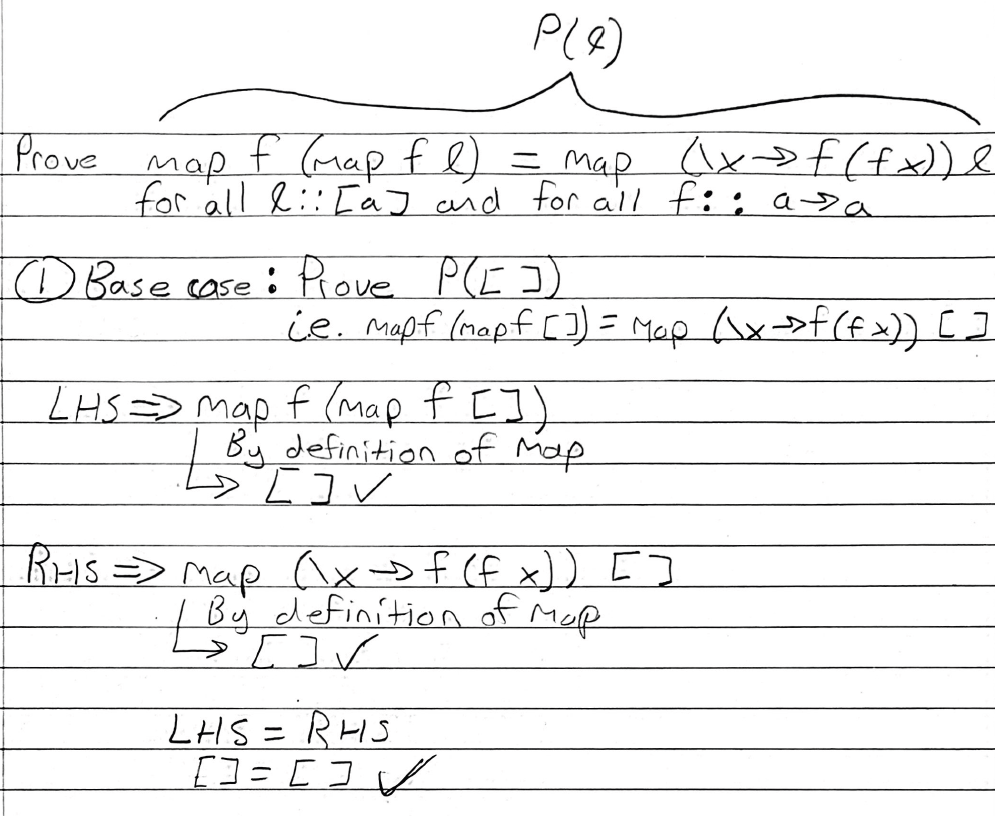 P(l)
Prove map f (map f l) = map (\x → f (f x)) l
for all l::[a] and for all f:: a→a
① Base case: Prove P([ ])
i.e. map f (map f [ ]) = map (\x → f (f x)) [ ]
LHS ⇒ map f (map f [ ])
By definition of map
↳ [ ] ✓
RHS ⇒ map (\x → f (f x)) [ ]
By definition of map
↳ [ ] ✓
LHS = RHS
[ ] = [ ] ✓